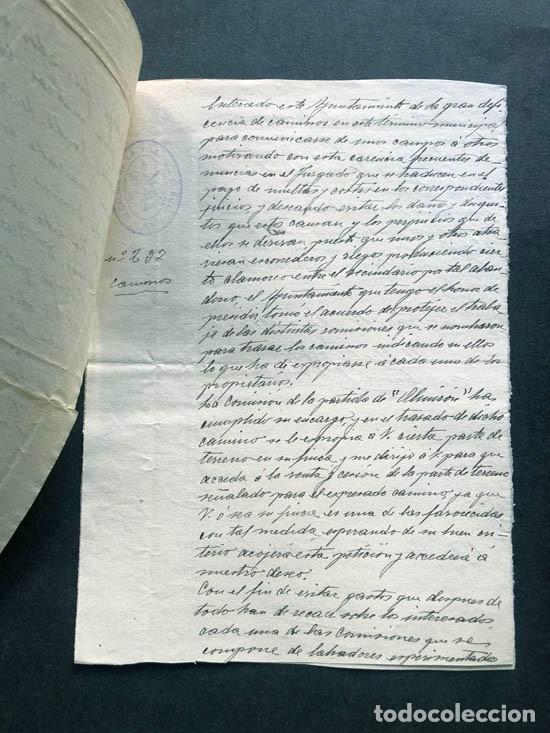 nº 237
Caminos
Enterado este Ayuntamiento de la gran defi-
ciencia de caminos en este término municipal
para comunicarse de unos campos á otros
motivando con esta carencia frecuentes de-
nuncias en el Juzgado que se traducen en el
pago de multas y costas en los correspondientes
juicios y deseando evitar los daños y disgus-
tos que estos causan y los perjuicios que de
ellos se derivan puesto que unos y otros atra-
viesan y riegos produciendo cier-
to clamoreo entre el vecindario por tal aban-
dono, el Ayuntamiento que tengo el honor de
presidir, tomó el acuerdo de proteger el traba-
jo de las distintas comisiones que se nombraron
para trazar los caminos indicando en ellos
lo que ha de expropiarse á cada uno de los
propietarios.
La Comision de la partida de "Almirón" ha
cumplido su encargo, y en el trazado de dicho
camino se le expropia á V. cierta parte de
terreno en su finca y me dirijo á V. para que
acceda á la venta y cesión de la parte de terreno
señalado para el expresado camino, ya que
V. ó sea su finca es una de las favorecidas
con tal medida esperando de su buen cri-
terio acojerá esta petición y accederá á
nuestro deseo.
Con el fin de evitar gastos que despues de
todo han de recaer sobre los interesados
cada una de las Comisiones que se
compone de labradores esperimentados
todocoleccion.net